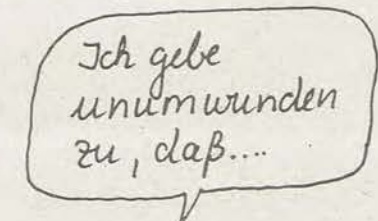 Ich gebe
unumwunden
zu, daß....